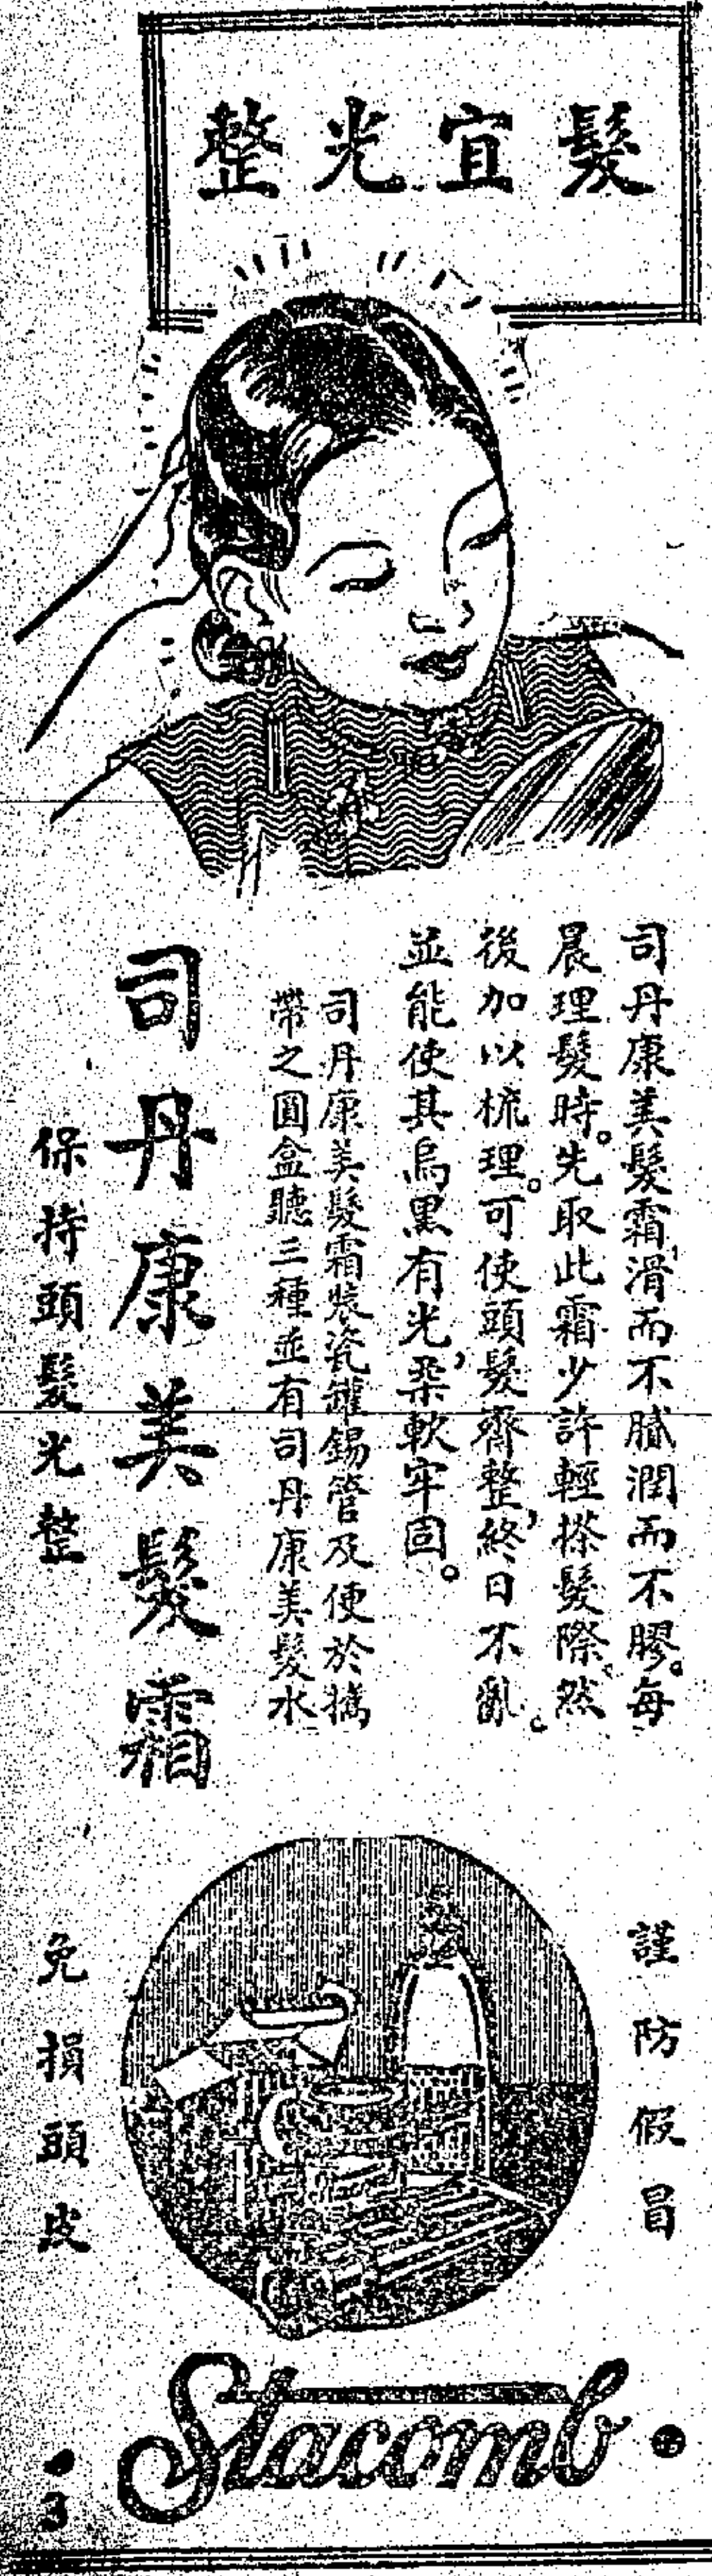 髮宜光整
司丹康美髮霜，滑而不膩潤而不膠。每
晨理髮時。先取此霜少許輕搽髮際。然
後加以梳理。可使頭髮齊整，終日不亂。
並能使其烏黑有光，柔軟牢固。
司丹康美髮霜裝瓷罐錫管及便於攜
帶之圓盒聽三種並有司丹康美髮水
司丹康美髮霜
保持頭髮光整
謹防假冒
免損頭皮
Stacomb